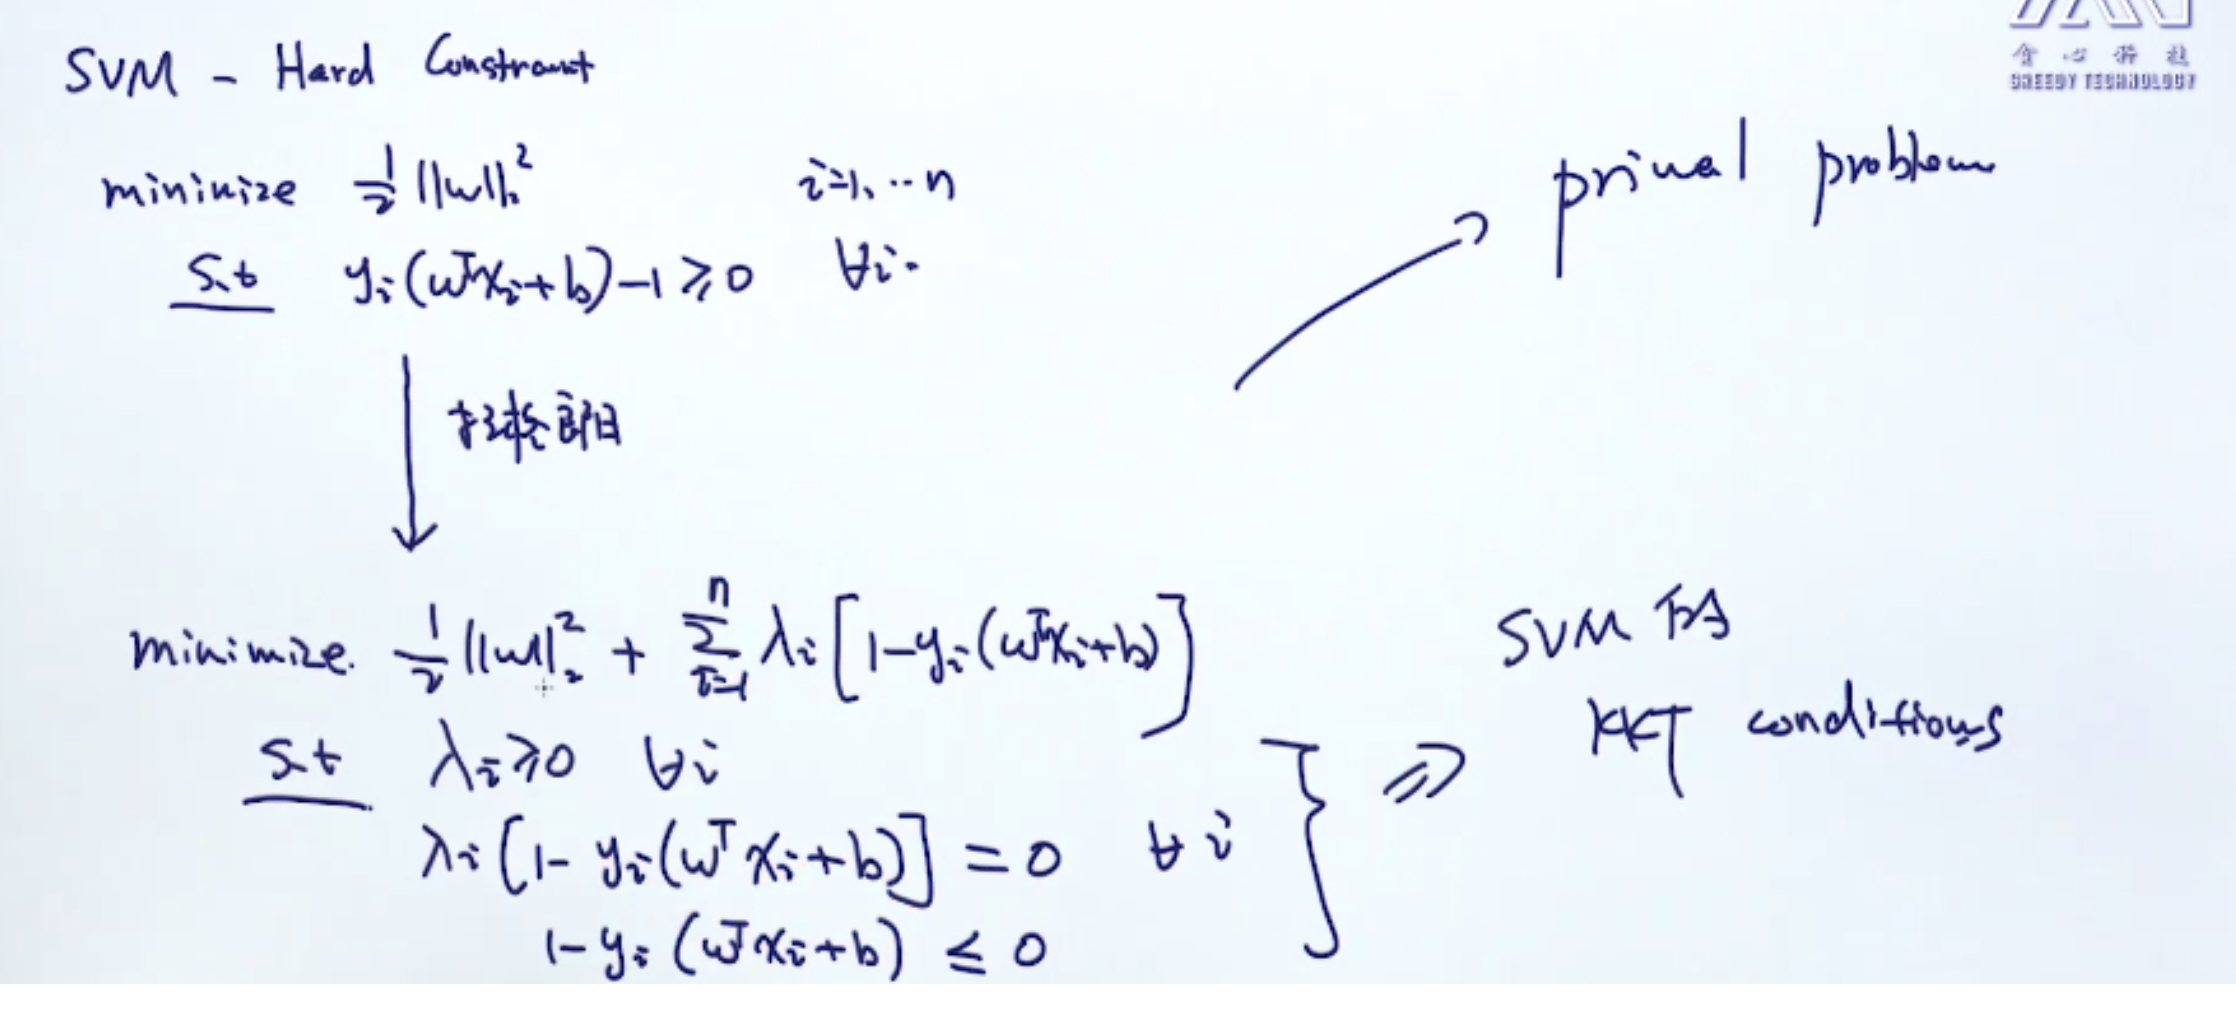 贪心科技
GREEDY TECHNOLOGY
SVM - Hard Constraint
minimize 1/2 ||w||₂² i=1, ..n
s.t yᵢ(wᵀxᵢ+b)-1 ≥ 0 ∀i.
primal problem
拉格朗日
minimize. 1/2 ||w||₂² + Σᵢ₌₁ⁿ λᵢ[1-yᵢ(wᵀxᵢ+b)]
s.t λᵢ≥0 ∀i
λᵢ[1- yᵢ(wᵀxᵢ+b)] = 0 ∀i
1-yᵢ(wᵀxᵢ+b) ≤ 0
} ⇒ SVM 的
KKT conditions